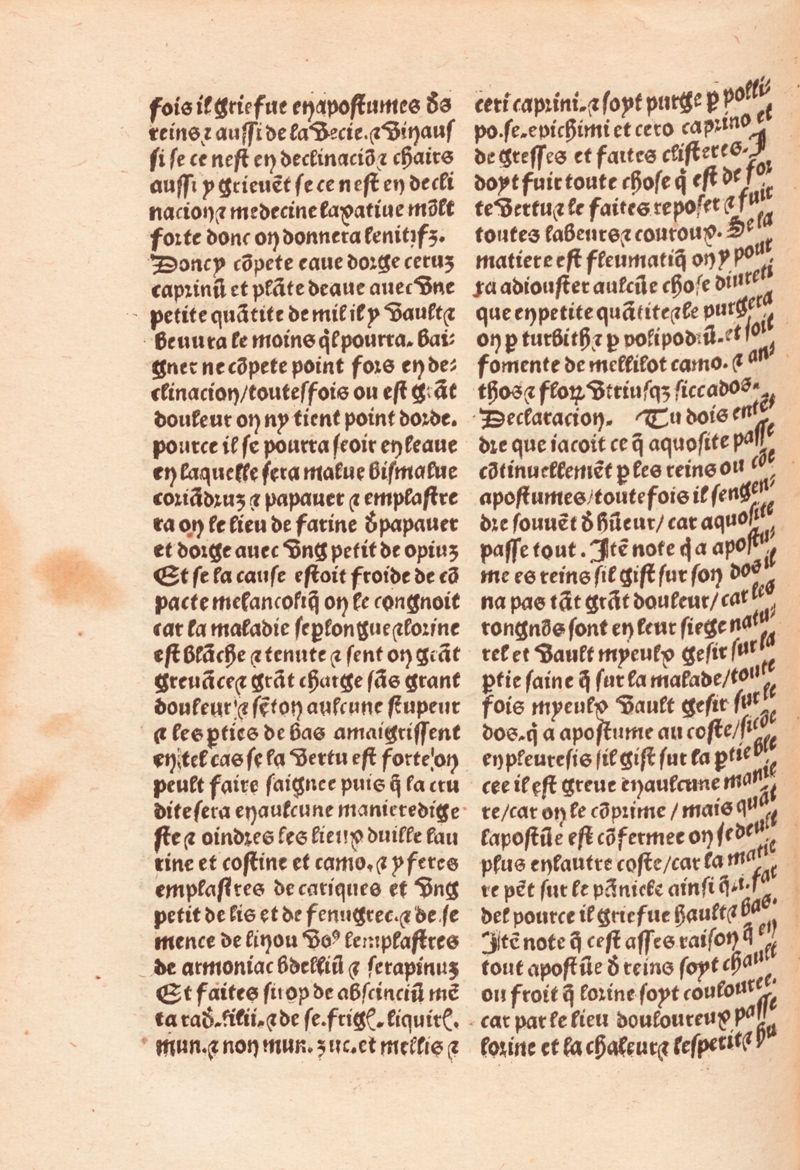 fois il griefue en apostumes d̄s
reins ⁊ aussi de la vecie.⁊ vin aus
si se ce nest en declinaciō ⁊ chairs
aussi y grieuēt se ce nest en decli
nacion ⁊ medecine laxatiue mōlt
forte donc on donnera lenitifʒ.
Doncy cōpete eaue dorge ceruʒ
caprinū et plāte deaue auec vne
petite quātite de mil il y vault ⁊
beuura le moins q̄l pourra. bai-
gner ne cōpete point fors en de-
clinacion/toutesfois ou est grāt
douleur on ny tient point dorde.
pource il se pourra seoir en leaue
en laquelle sera malue bismalue
coriādruʒ ⁊ papauer ⁊ emplastre
ra on le lieu de farine d̄ papauer
et dorge auec vng petit de opiuʒ
Et se la cause estoit froide de cō
pacte melancoliq̄ on le congnoit
car la maladie se ꝑlongue ⁊ lorine
est blāche ⁊ tenute ⁊ sent on grāt
greuāce ⁊ grāt charge sās grant
douleur/⁊ sēt on aulcune stupeur
⁊ les ꝑties de bas amaigrissent
en tel cas se la vertu est forte/on
peult faire saignee puis q̄ la cru
dite sera en aulcune maniere dige
ste ⁊ oindres les lieux duille lau
rine et costine et camo. ⁊ y feres
emplastres de cariques et vng
petit de lis et de fenugrec.⁊ de se
mence de lin ou voꝰ lemplastres
de armoniac bdelliū ⁊ serapinuʒ
Et faites sirop de abscinciū mē
ta rad̄. lilii.⁊ de se. frigł. liquirł.
mun. ⁊ non mun. ʒuc. et mellis ⁊
ceri caprini.⁊ soyt purge ꝑ polli-
po.se.epichimi et cero caprino et
de gresses et faites clisteres. I
doyt fuir toute chose q̄ est de for
te vertu ⁊ le faites reposer ⁊ fuir
toutes labeurs ⁊ couroux. Se la
matiere est fleumatiq̄ on y pour
ra adiouster aulcūe chose diureti
que en petite quātite ⁊ le purgera
on ꝑ turbith ⁊ ꝑ polipodiū. et soit
fomente de mellilot camo. ⁊ an-
thos ⁊ floꝝ vtriusqʒ siccados.
Declaracion. Tu dois entē-
dre que iacoit ce q̄ aquosite passe
cōtinuellemēt ꝑ les reins ou cōe
apostumes/toutefois il sengen-
dre souuēt d̄ hūeur/ car aquosite
passe tout. Itē note q̄ a apostu-
me es reins sil gist sur son dos il
na pas tāt grāt douleur/ car les
rongnōs sont en leur siege natu-
rel et vault myeulx gesir sur la
ꝑtie saine q̄ sur la malade/toute
fois myeulx vault gesir sur le
dos.q̄ a apostume au coste/sicōe
en pleuresis sil gist sur la ꝑtie ble
cee il est greue en aulcune manie
re/car on le cōprime / mais quāt
lapostūe est cōfermee on se deult
plus en lautre coste/car la matie
re pēt sur le pānicle ainsi q̄.i. far
del pource il griefue hault ⁊ bas.
Itē note q̄ cest asses raison q̄ en
tout apostūe d̄ reins soyt chault
ou froit q̄ lorine soyt coulouree.
car par le lieu douloureux passe
lorine et la chaleur ⁊ lesperit ⁊ hu